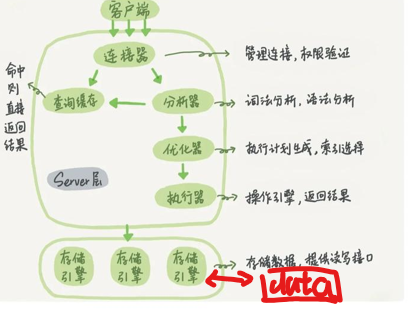 客户端
连接器
管理连接,权限验证
命中
则
直接
返回
结果
查询缓存
分析器
词法分析,语法分析
优化器
执行计划生成,索引选择
Server层
执行器
操作引擎,返回结果
存储
引擎
存储
引擎
存储
引擎
存储数据,提供读写接口
data